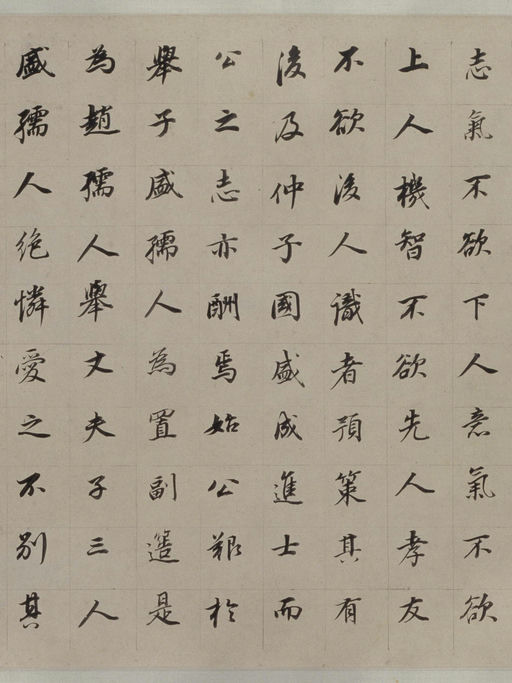 志氣不欲下人意氣不欲
上人機智不欲先人孝友
不欲後人識者預策其有
後及仲子國盛成進士而
公之志亦酬焉始公艱於
舉子盛孺人為置副簉是
為趙孺人舉丈夫子三人
盛孺人絕憐愛之不別其